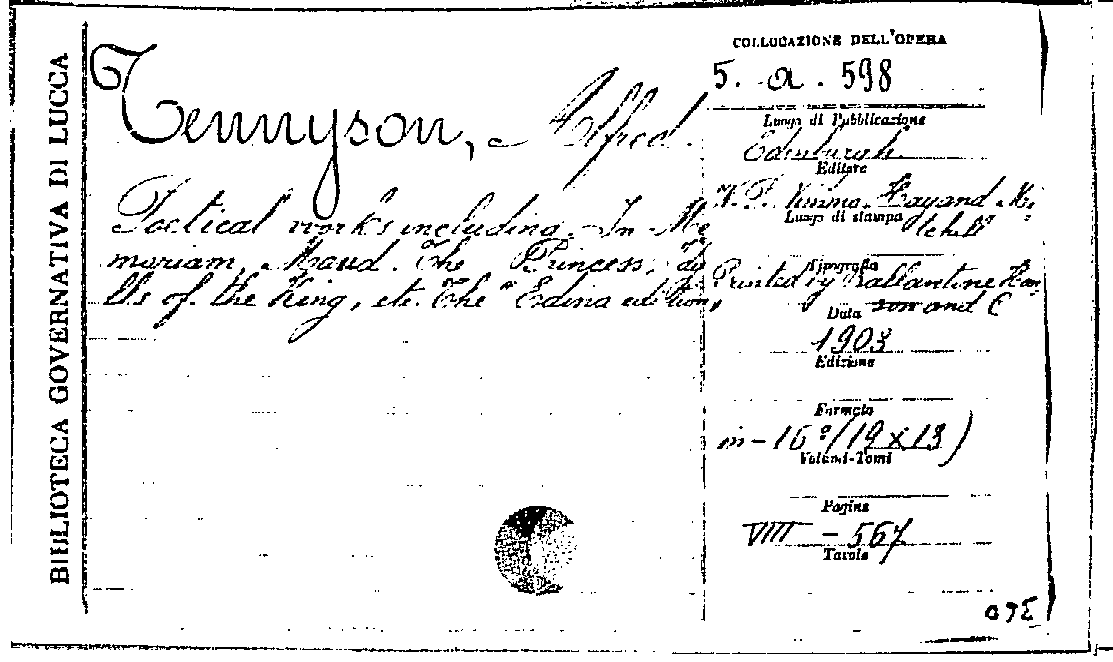 BIBLIOTECA GOVERNATIVA DI LUCCA
Tennyson, Alfred.
Poetical works including. In Me
moriam, Maud. The Princess, Idy
lls of the King, etc. The "Edina edition,
COLLOCAZIONE DELL'OPERA
5. a. 598
Luogo di Pubblicazione
Edinburgh.
Editore
W. P. Nimmo. Hay and Mi
tchell
Luogo di stampa
Tipografia
Printed by Ballantine Han
son and C
Data
1903
Edizione
Formato
in-16º (19x13)
Volumi-Tomi
Pagine
VIII - 567
Tavole